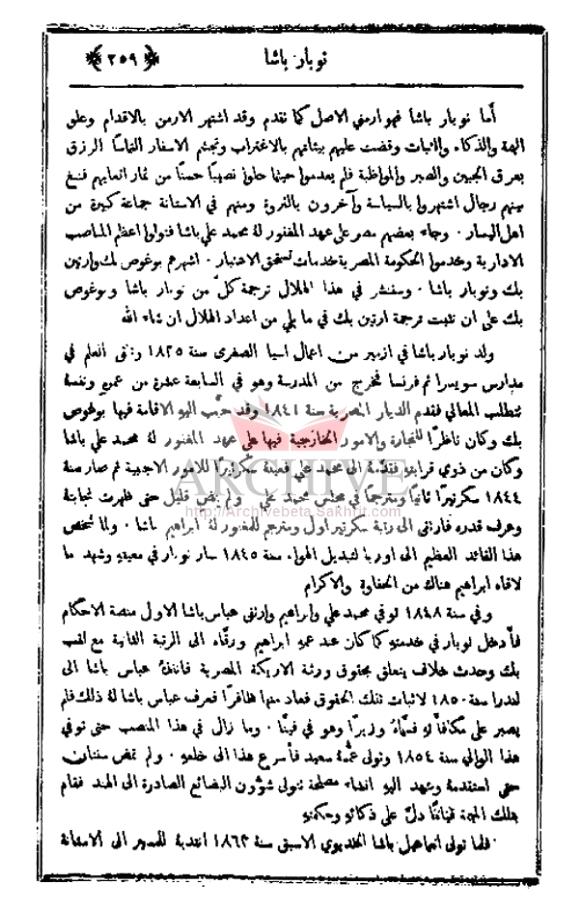 نوبار باشا
﴿ ٢٥٩ ﴾
أما نوبار باشا فهو ارمني الاصل كما تقدم وقد اشتهر الارمن بالاقدام وعلو
الهمة والذكاء والثبات وقضت عليهم بيئاتهم بالاغتراب وتجشم الاسفار التماسًا للرزق
بعرق الجبين والصبر والمواظبة فلم يعدموا حيثما حلوا نصيبًا حسنًا من ثمار اتعابهم فنبغ
بينهم رجال اشتهروا بالسياسة وآخرون بالثروة ومنهم في الاستانة جماعة كبيرة من
اهل اليسار · وجاء بعضهم مصر على عهد المغفور له محمد علي باشا فتولوا اعظم المناصب
الادارية وخدموا الحكومة المصرية خدمات تستحق الاعتبار · اشهرهم بوغوص بك وارتين
بك ونوبار باشا · وسننشر في هذا الهلال ترجمة كلّ من نوبار باشا وبوغوص
بك على ان نثبت ترجمة ارتين بك في ما يلي من اعداد الهلال ان شاء الله
ولد نوبار باشا في ازمير من اعمال اسيا الصغرى سنة ١٨٢٥ وتلقى العلم في
مدارس سويسرا ثم فرنسا فتخرج من المدرسة وهو في السابعة عشرة من عمره ونفسه
تتطلب المعالي فقدم الديار المصرية سنة ١٨٤١ وقد حبّب اليه الاقامة فيها بوغوص
بك وكان ناظرًا للتجارة والامور الخارجية فيها على عهد المغفور له محمد علي باشا
وكان من ذوي قرابته فقدّمهُ الى محمد علي فعينهُ سكرتيرًا للامور الاجنبية ثم صار سنة
١٨٤٤ سكرتيرًا ثانيًا ومترجمًا في مجلس محمد علي ولم يمضِ قليل حتى ظهرت نجابتهُ
وعرف قدره فارتقى الى رتبة سكرتير اول ومترجم للمغفور له ابراهيم باشا · ولما شخص
هذا القائد العظيم الى اوربا لتبديل الهواء سنة ١٨٤٥ سار نوبار في معيته وشهد ما
لاقاه ابراهيم هناك من الحفاوة والاكرام
وفي سنة ١٨٤٨ توفي محمد علي وابراهيم وارتقى عباس باشا الاول منصة الاحكام
فأدخل نوبار في خدمته كما كان عند عمه ابراهيم ورقّاه الى الرتبة الثانية مع لقب
بك وحدث خلاف يتعلق بحقوق ورثة الاريكة المصرية فانفذهُ عباس باشا الى
لندرا سنة ١٨٥٠ لاثبات تلك الحقوق فعاد منها ظافرًا فعرف عباس باشا لهُ ذلك فلم
يصبر على مكافأته فسمّاهُ وزيرًا وهو في فينّا · وما زال في هذا المنصب حتى توفي
هذا الوالي سنة ١٨٥٤ وتولى عمّهُ سعيد فأسرع هذا الى خلعه · ولم تمض سنتان
حتى استقدمهُ وعهد اليه انشاء مصلحة تتولى شؤون البضائع الصادرة الى الهند فقام
بتلك المهمة قيامًا دلّ على ذكائه وحكمته
فلما تولى اسماعيل باشا الخديوي الاسبق سنة ١٨٦٣ انتدبهُ للمسير الى الاستانة
ARCHIVE
http://Archivebeta.Sakhrit.com